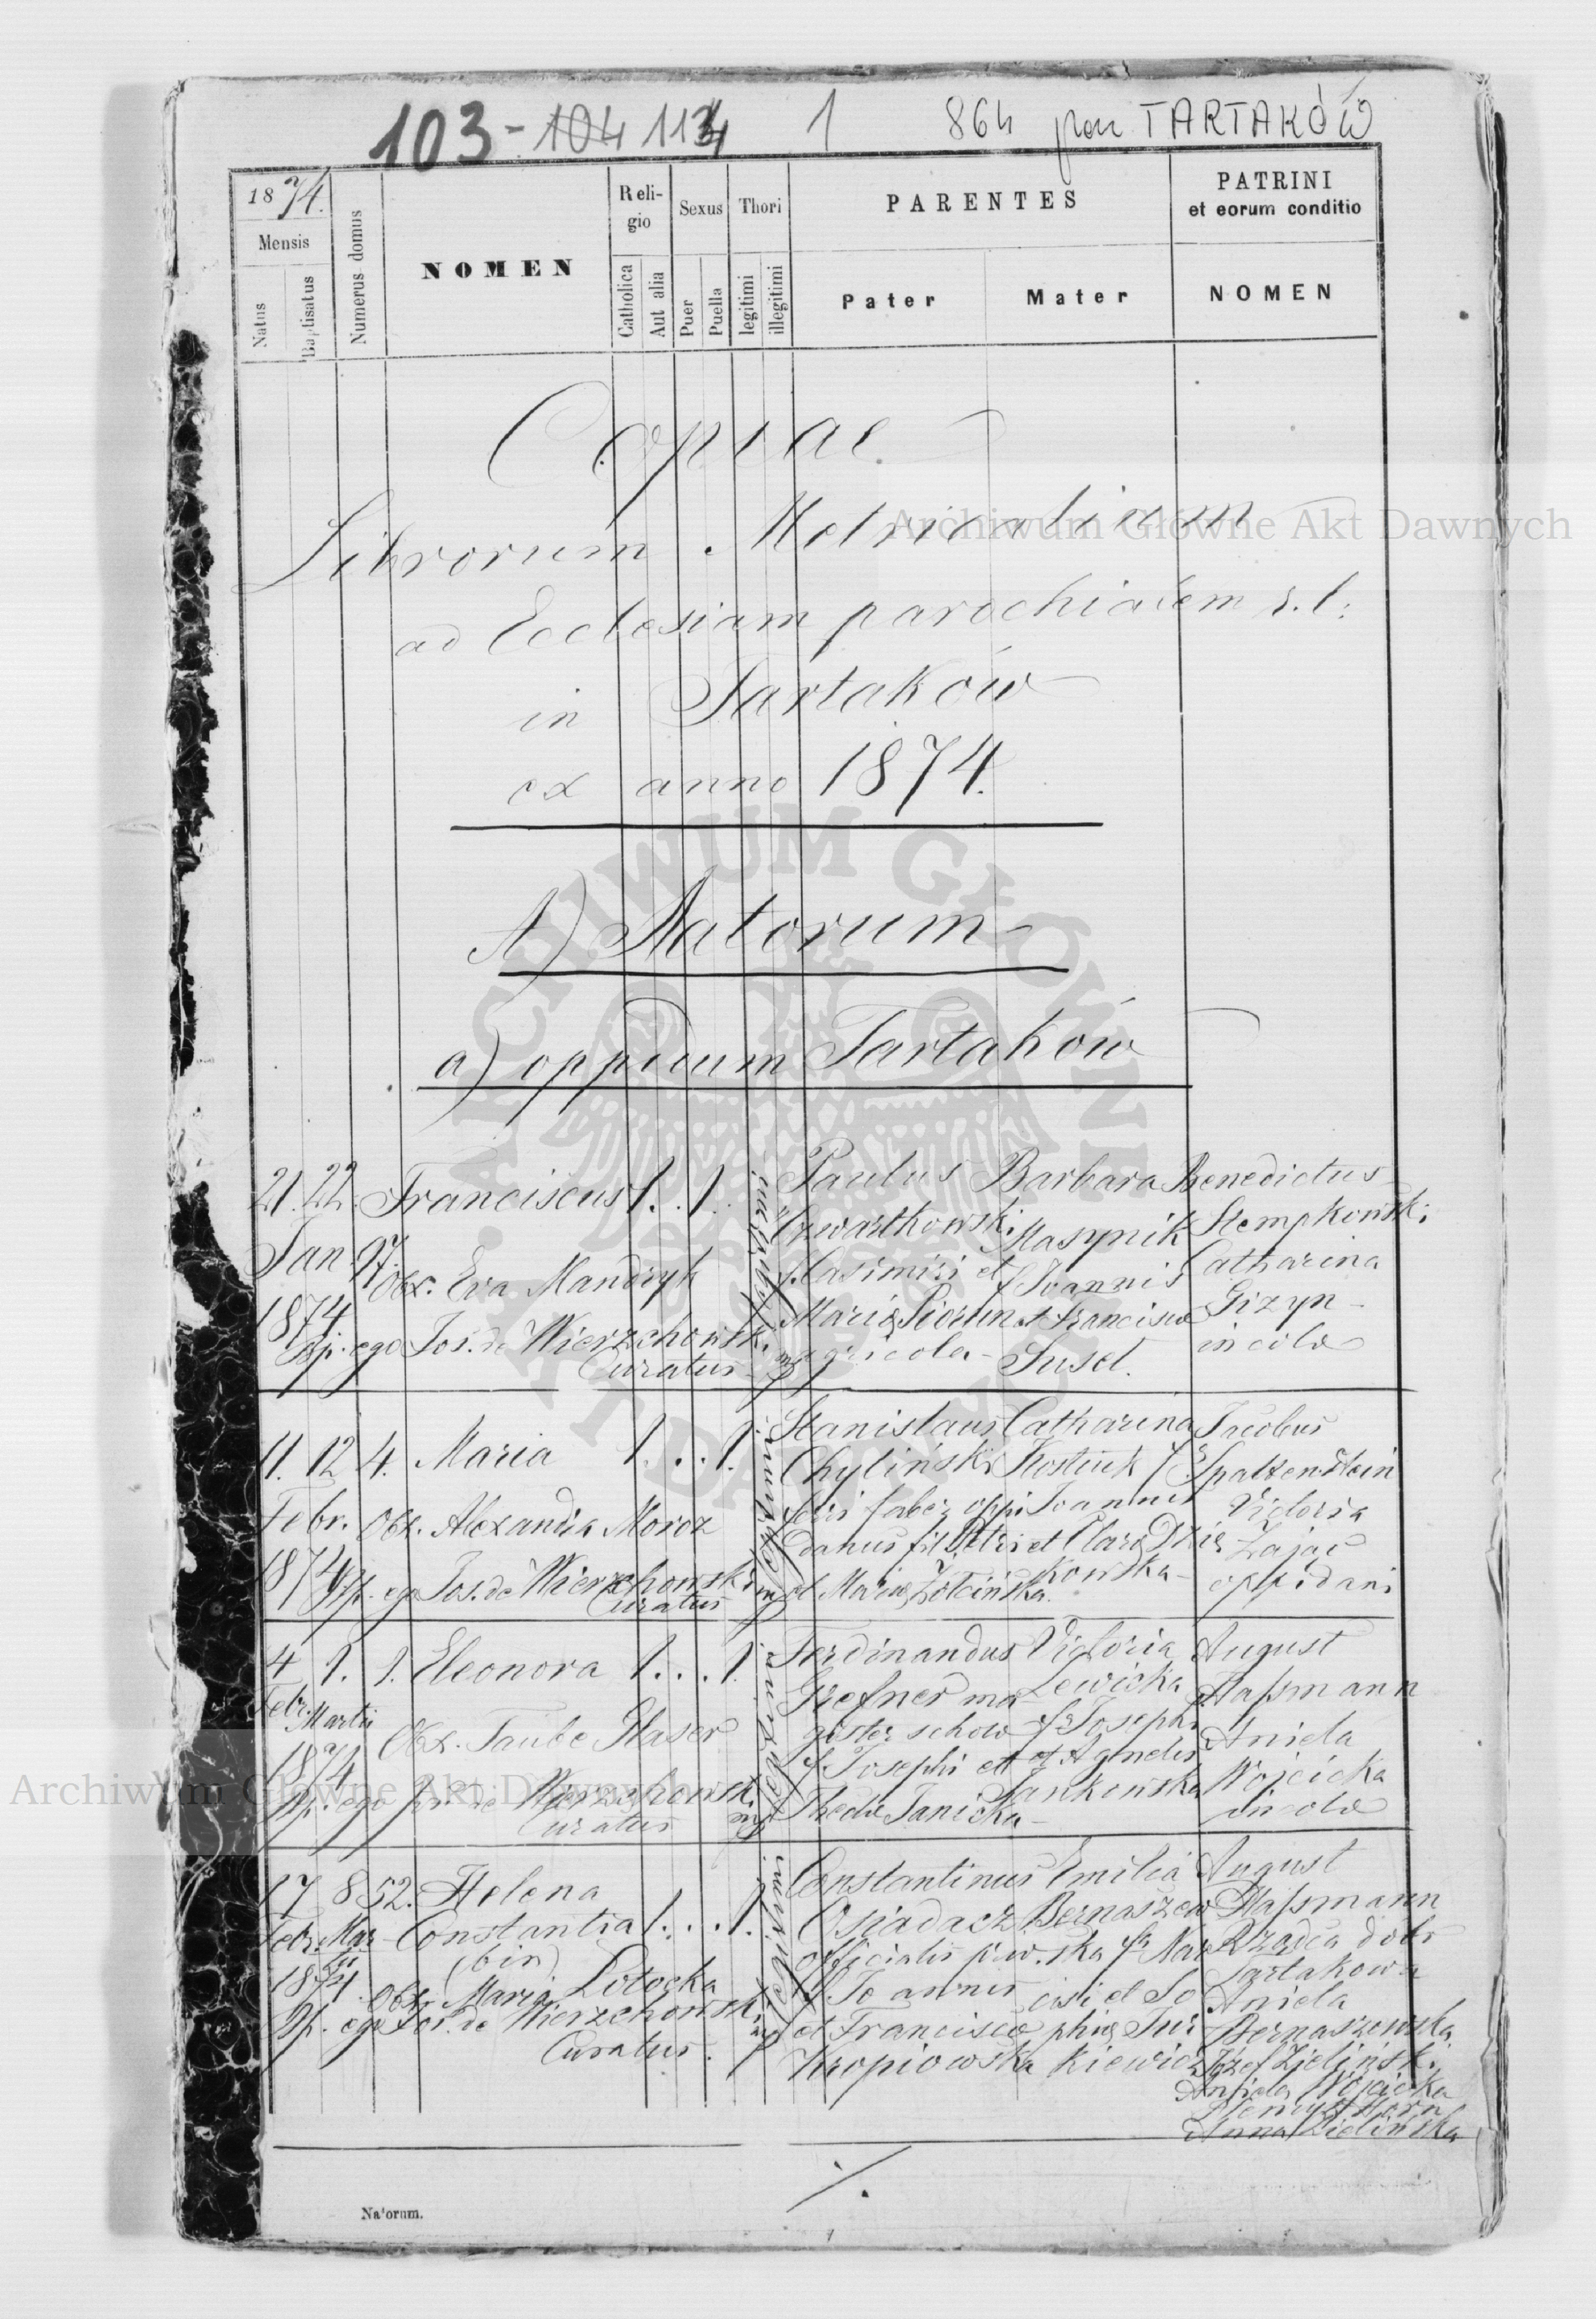 103 - 104 114 1 864 par TARTAKÓW
1874.
Mensis
Natus
Baptisatus
Numerus domus
NOMEN
Religio
Catholica
Aut alia
Sexus
Puer
Puella
Thori
legitimi
illegitimi
PARENTES
Pater
Mater
PATRINI
et eorum conditio
NOMEN
Copiae
Librorum Metricalium
ad Ecclesiam parochialem r. l.
in Tartaków
ex anno 1874.
A) Natorum
a) oppidum Tartaków
21. 22. Franciscus 1. . 1. .
Jan 97.
Obx. Eva Mandryk
1874
Bp. ego Jos. de Wierzchowski
Curatus
Paulus
Czwartkowski
f. Casimiri et
Maria Piorun
agricola
Barbara
Masynik
f. Joannis
et Francisca
Susel.
Benedictus
Stempkowski
Catharina
Gizyn
incolae
11. 12 4. Maria 1. . . 1.
Febr. Obx. Alexandra Moroz
1874 Bp. ego Jos. de Wierzchowski
Curatus
Stanislaus
Chyliński
ferri faber oppi
danus fil. Petri
et Maria
Catharina
Kostiuk f.
Joannis
et Clara Dzię
kowska
Jacobus
Spaltenstein
Victoria
Zając
oppidani
4 1. 1. Eleonora 1. . . 1.
Febr. Martii
Obx. Taube Glaser
1874
Bp. ego Jos. de Wierzchowski
Curatus
Ferdinandus
Grefner ma
gister
f. Josephi et
Thecla Janicka
Victoria
Lewicka
f. Josephi
et Agnetis
Jankowska
August
Hassmann
Aniela
Wojcicka
incolae
17 8 52. Helena
Febr. Mar Constantia 1. . . 1.
tii (bin)
1874. Obx. Maria Łotocka
Bp. ego Jos. de Wierzchowski
Curatus.
Constantinus
Osiadacz
officialis
f. Joannis
et Francisca
Kropiowska
Emilia
Bernaszew
ska f. Nar
cisi et So
phia Jur
kiewicz
August
Hassmann
Rządca dobr
Tartakowa
Aniela
Bernaszewska
Józef Zieliński
Aniela Wojcicka
Henryk Horn
Anna Zielińska
./.
Natorum.
Archiwum Główne Akt Dawnych
Archiwum Główne Akt Dawnych
ARCHIWUM GŁÓWNE AKT DAWNYCH